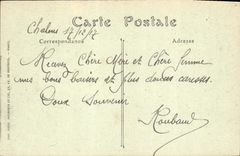 Carte Postale
Chalons 17/12/17
Correspondance
Adresse
Recevez Chère Mère et Chère femme
mes bons baisers et plus douces caresses.
Doux Souvenir
Roubaud